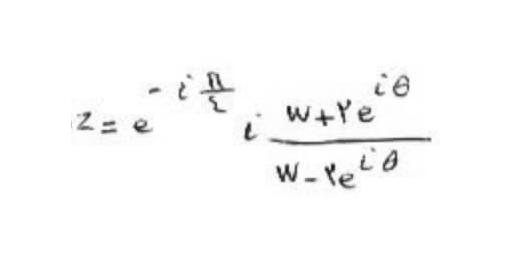 z = e^{-i\frac{\pi}{٤}} i \frac{w+۲e^{iθ}}{w-۲e^{iθ}}